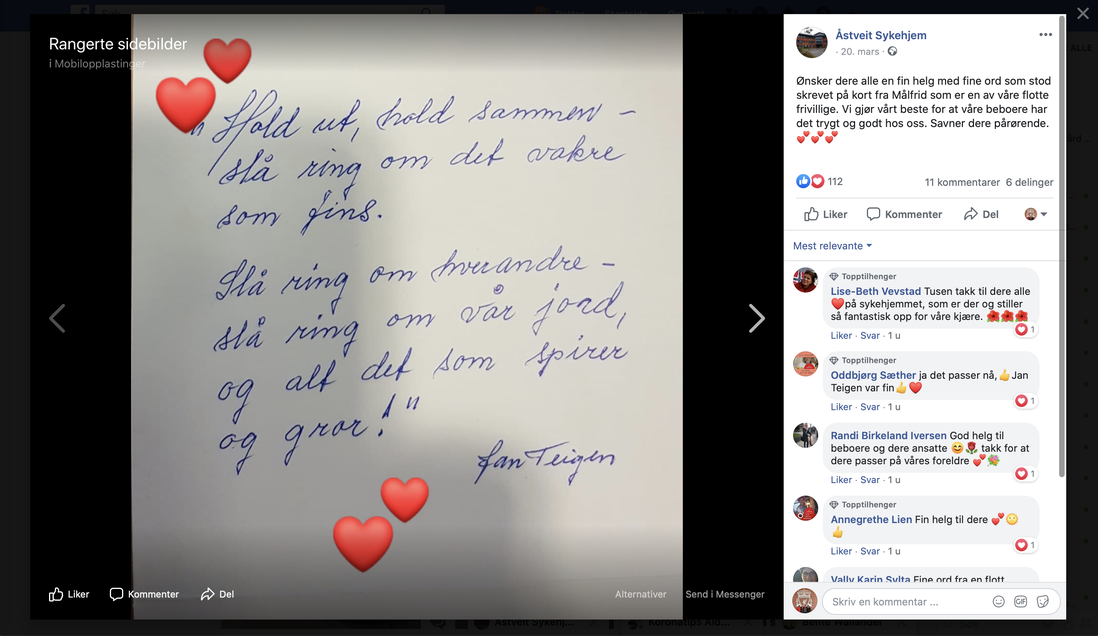 Rangerte sidebilder
i Mobilopplastinger
" Hold ut, hold sammen –
slå ring om det vakre
som fins.
Slå ring om hverandre –
slå ring om vår jord,
og alt det som spirer
og gror!"
Jan Teigen
Liker
Kommenter
Del
Alternativer
Send i Messenger
Åstveit Sykehjem
· 20. mars ·
Ønsker dere alle en fin helg med fine ord som stod
skrevet på kort fra Målfrid som er en av våre flotte
frivillige. Vi gjør vårt beste for at våre beboere har
det trygt og godt hos oss. Savner dere pårørende.
💕💕💕
112
11 kommentarer 6 delinger
Liker
Kommenter
Del
Mest relevante
Topptilhenger
Lise-Beth Vevstad Tusen takk til dere alle
❤️på sykehjemmet, som er der og stiller
så fantastisk opp for våre kjære. 🌺🌺🌺
1
Liker · Svar · 1 u
Topptilhenger
Oddbjørg Sæther ja det passer nå,👍Jan
Teigen var fin👍❤️
1
Liker · Svar · 1 u
Randi Birkeland Iversen God helg til
beboere og dere ansatte 😊🌹 takk for at
dere passer på våres foreldre 💕💐
1
Liker · Svar · 1 u
Topptilhenger
Annegrethe Lien Fin helg til dere 💕🙂
👍
1
Liker · Svar · 1 u
Vally Karin Sylta Fine ord fra en flott
Skriv en kommentar ...
GIF